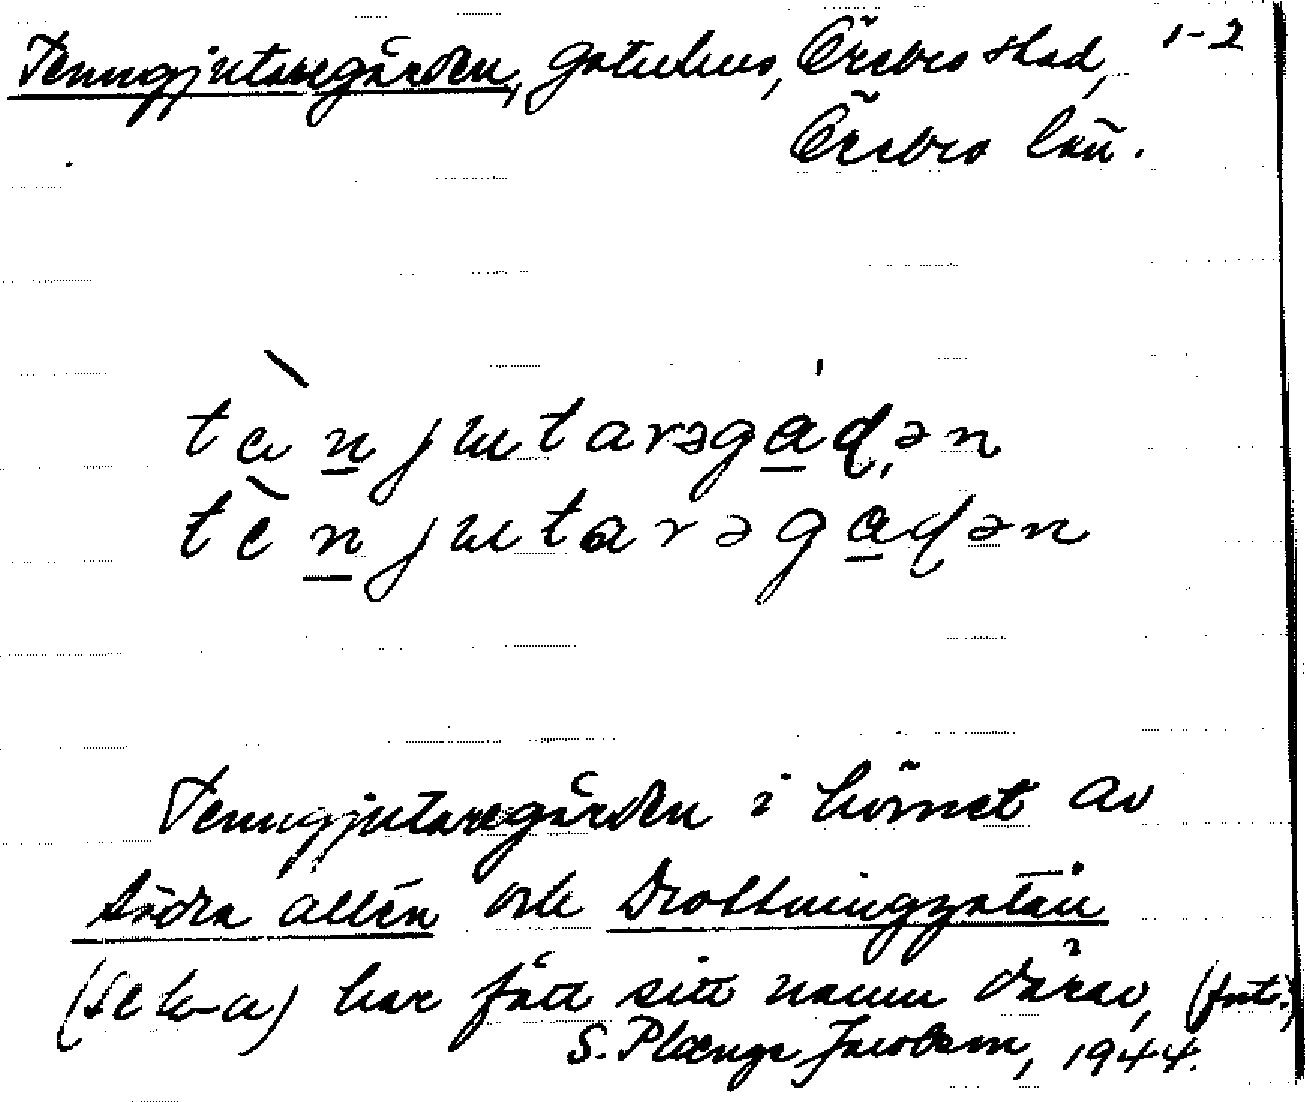 Tenngjutaregården, gatuhus, Örebro stad, 1-2
Örebro län.
tæ̀n̲jʉtarəga̲ḍən
tèn̲jʉtarəga̲ḍən
Tenngjutaregården i hörnet av
Södra allén och Drottninggatan
(se k-a) har fått sitt namn därav, (forts.)
S. Plænge Jacobson, 1944.